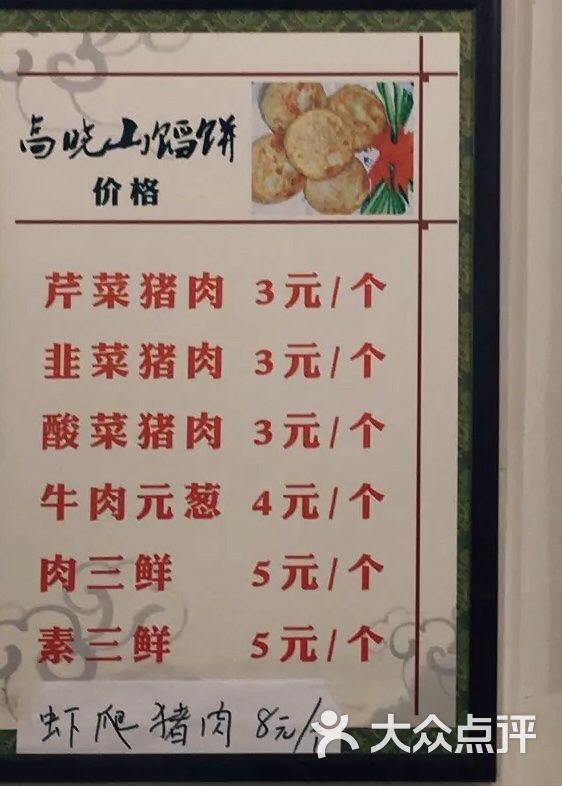 高晓山馅饼
价格
芹菜猪肉 3元/个
韭菜猪肉 3元/个
酸菜猪肉 3元/个
牛肉元葱 4元/个
肉三鲜 5元/个
素三鲜 5元/个
虾爬猪肉 8元/个
大众点评